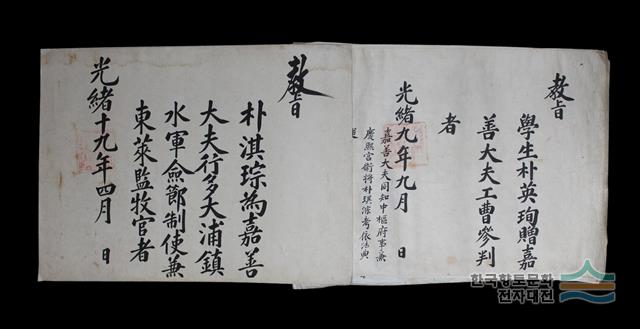 敎旨
學生朴英珣贈嘉
善大夫工曹參判
者
光緖九年九月 日
嘉善大夫同知中樞府事兼
慶熙宮衛將朴琪淙考依法典
追
敎旨
朴淇琮為嘉善
大夫行多大浦鎮
水軍僉節制使兼
東萊監牧官者
光緖十九年四月 日
한국향토문화
전자대전